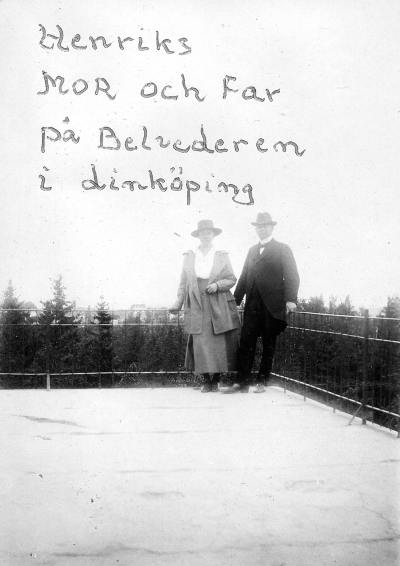 Henriks
MOR och Far
på Belvederen
i Linköping